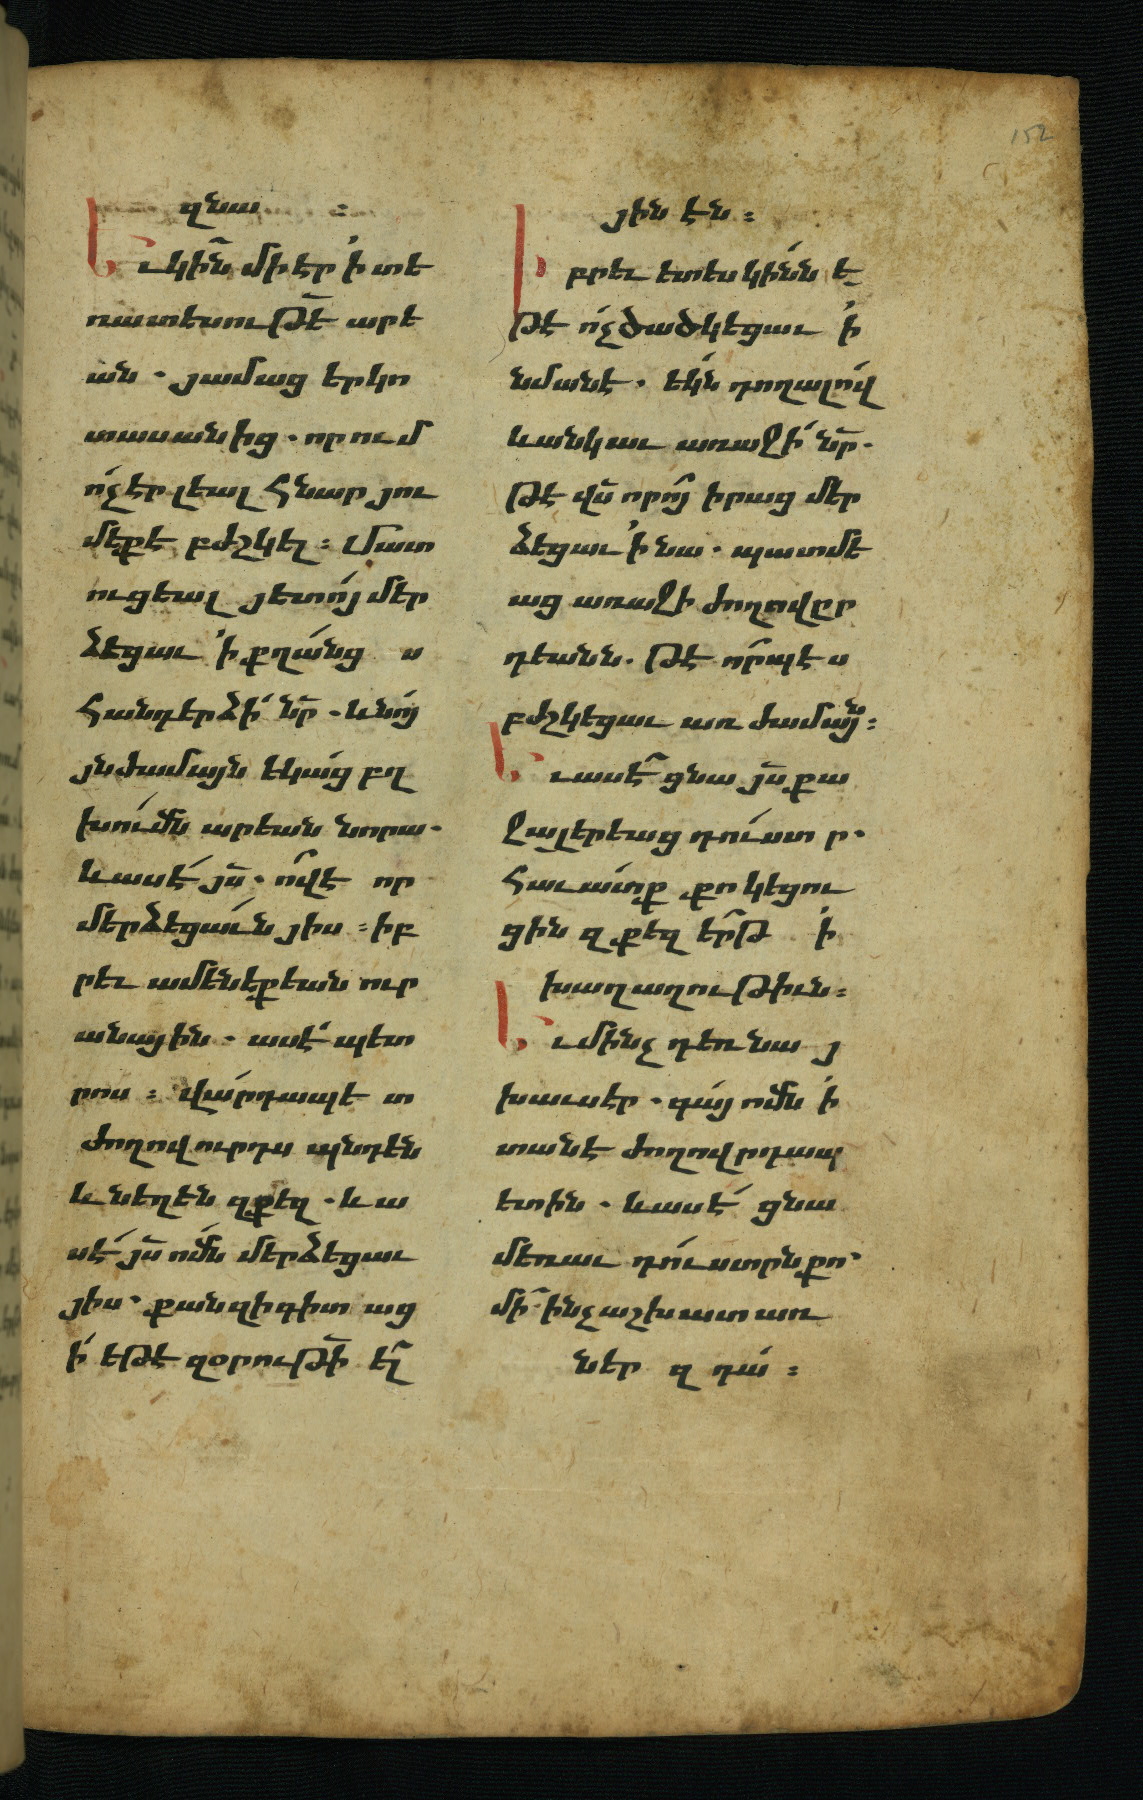 զնա :
Եւ կին մի էր ՛ի տե
ռատեսութէ արե
ան . յամաց երկո
տասանից . որ ում
ո՛չ էր լեալ հնար յու
մեքէ բժշկել : Մատ
ուցեալ յետո՛յ մեր
ձեցաւ ՛ի քղա՛նց ս
հանդերձի՛ նր . և նո՛յ
յն ժամայն եկա՛ց բղ
խո՛ւմն արեան նորա .
և ասէ՛ յս . ո՞վ է որ
մերձեցա՛ւն յիս : իբ
րեւ ամենեքեան ուր
անային . ասէ՛ պետ
րոս : վա՛րդապետ
ժողովուրդս պնդեն
և նեղեն զքեզ . և ա
սէ՛ յս ո՛մն մերձեցաւ
յիս . քանզի գիտ աց
ի՛ եթէ զօրութի ել
յինէն :
Իբրեւ ետես կինն ե
թէ ո՛չ ծածկեցաւ ՛ի
նմանէ . եկն դողալո՛վ
և անկաւ առաջի՛ նր .
թէ վս որո՛յ իրաց մեր
ձեցաւ ՛ի նա . պատմե
աց առաջի ժողովըր
դեանն . թէ ո՛րպէս
բժշկեցաւ առ ժամայն :
Եւ ասէ՛ ցնա յս քա
ջալերեաց դո՛ւստր .
հաւա՛տք քո կեցու
ցին զքեզ ե՛րթ ՛ի
խաղաղութիւն :
Եւ մինչ դեռ նա յ
խաւսէր . գա՛յ ո՛մն ՛ի
տանէ ժողովրդապ
ետին . և ասէ՛ ցնա
մեռաւ դո՛ւստրն քո .
մի՛ ինչ աշխատ առ
նէր զ դա՛ :
152